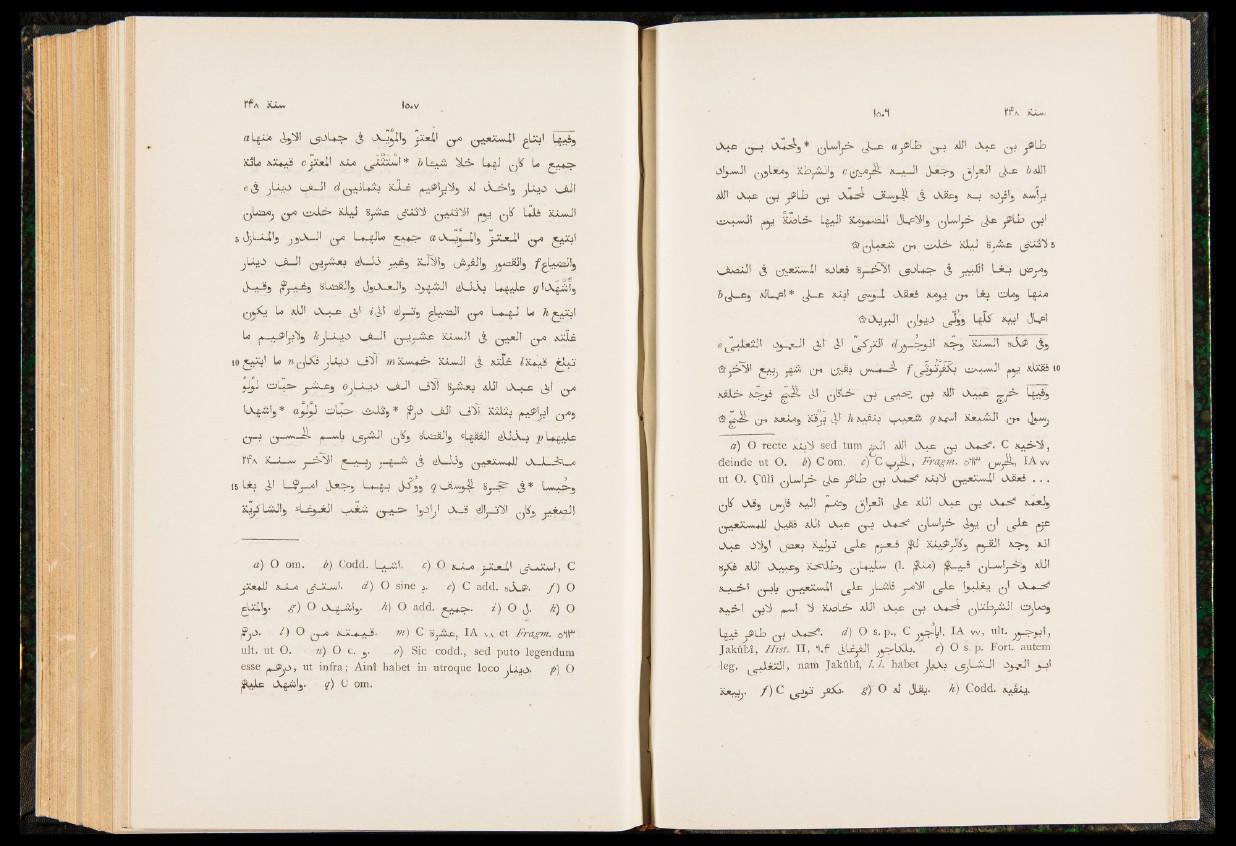 سنة ٢٤٨ ١٥٠٦
طاهر بن عبد الله بن طاهر a على خراسان * ولمحمد بن عبد
الله b على العراق وجعل اليه الحرمين c والشرطة ومعاون السواد
برأسه وافرده به وعقد فى الجوسق لمحمد بن طاهر بن عبد الله
ابن طاهر على خراسان والاعمال المضمومة اليها خاصّة يوم السبت
5 لاثنتى عشرة ليلة خلت من شعبان ۞
ومرض بغا الكبير فى جمادى الآخرة فعاده المستعين فى النصف
منها ومات بغا من يومه فعقد لموسى ابنه على * اعماله وعلى b
اعمال ابيه كلّها وولّى ديوان البريد ۞
وفى هذه السنة وجّه انوجور d التركى الى ابى العمود الثعلبى e
10 فقتله يوم السبت بكفرتوثى f لخمس بقين من شهر ربيع الآخر ۞
وفيها خرج عبيد الله بن يحيى بن خاقان الى الحجّ فوجّه خلفه
رسول من الشيعة اسمه g شعيب بنفيه h الى برقة ومنعه من الحجّ ۞
a) O recte لابنه sed tum عبد الله الخ. C لاخيه محمد بن,
deinde ut O. b) C om. c) C الحرب, Fragm. ٥٦٣ الحرس, IA ٧٧
ut O. Çûlî فعقد المستعين لابنه محمد بن طاهر على خراسان ...
ولعمه محمد بن عبد الله على العراق وضم اليه فارس وقد كان
عزم على ان يولى خراسان محمد بن عبد الله فقيل للمستعين
انه وجه القوم وكالراهبة لهم فعزم على تولية بعض اولاد عبد
الله واخراسان فيهم (l. منهم) سليمان وطلحة وعبيد الله فكره
محمد ان يغلبوا على الامر فاشار على المستعين بابن اخيه
وصارت الشرطتان لمحمد بن عبد الله خاصة لا اسم لابن اخيه
محمد بن طاهر فيها. d) O s. p., C اباجور. IA ٧٧, ult. ابوجور,
Jakûbî, Hist. II, ٦٠٤ بكلاجور الفرغانى. e) O s. p. Fort. autem
leg. التغلبى, nam Jakûbî, l. l. habet ابو العمود الشارى بديار
ربيعة. f) C بكفر توثى. g) O يقال له. h) Codd. ينفيه.
سنة ٢٤٨ ١٥٠٧
وفيها ابتاع المستعين من المعتزّ والمؤيّد فى جمادى الاولى منها a
جميع ما كان لهما خلا شيئا b * استثنى منه المعتزّ c قيمته مائة
الف دينار واخذ له ولابراهيم غلّة بثمانين d الف دينار فى e
السنة فلما كان يوم الاثنين لاثنتى عشرة ليلة خلت من رمضان
5 ابتيع من المعتزّ والمؤيّد a جميع مالهما من الدور والمنازل
والضياع f والقصور والفرش والآلة وغير ذلك بعشرين الف دينار
واشهدا g عليهما بذلك الشهود والعدول والقضاة وغيرهم وقيل
ابتيع h ما لهما من الضياع وترك الى i ابى عبد الله ما يكون
غلّته من العين فى السنة عشرين الف دينار k ولابراهيم ما
تبلغ قيمة l غلّته فى السنة خمسة m آلاف دينار فكان n ما ابتيع 10
من ابى عبد الله بعشرة آلاف الف دينار o وعشر حبّات لؤلؤ
ومن ابراهيم بثلثة آلاف الف درهم * وثلث حبّات لؤلؤ a * واشهدا
عليهما p بذلك الفقهاء والقضاة وكان الشرى باسم الحسن بن
مخلد للمستعين وذلك فى شهر ربيع الآخر سنة ٢٤٨
15 وحبسا * فى حجرة الجوسق q ووكّل بهما وجعل امرهما الى بغا
الصغير وكان الاتراك قد ارادوا حين شغب الغوغاء والشاكريّة
a) O om. b) Codd. اشيا. c) O استثنى المعتز منه, C
استثنى منه للمعتز. d) O sine ب. e) C add. هذه. f) O
والمتاع. g) O واشهد. h) O add. جميع. i) O ل. k) O
درهم. l) O من قيمة. m) C عشرة, IA ٧٨ et Fragm. ٥٦٣
ult. ut O. n) O c. و. o) Sic codd., sed puto legendum
esse درهم, ut infra; Ainî habet in utroque loco دينار. p) O
واشهد عليهم. q) C om.